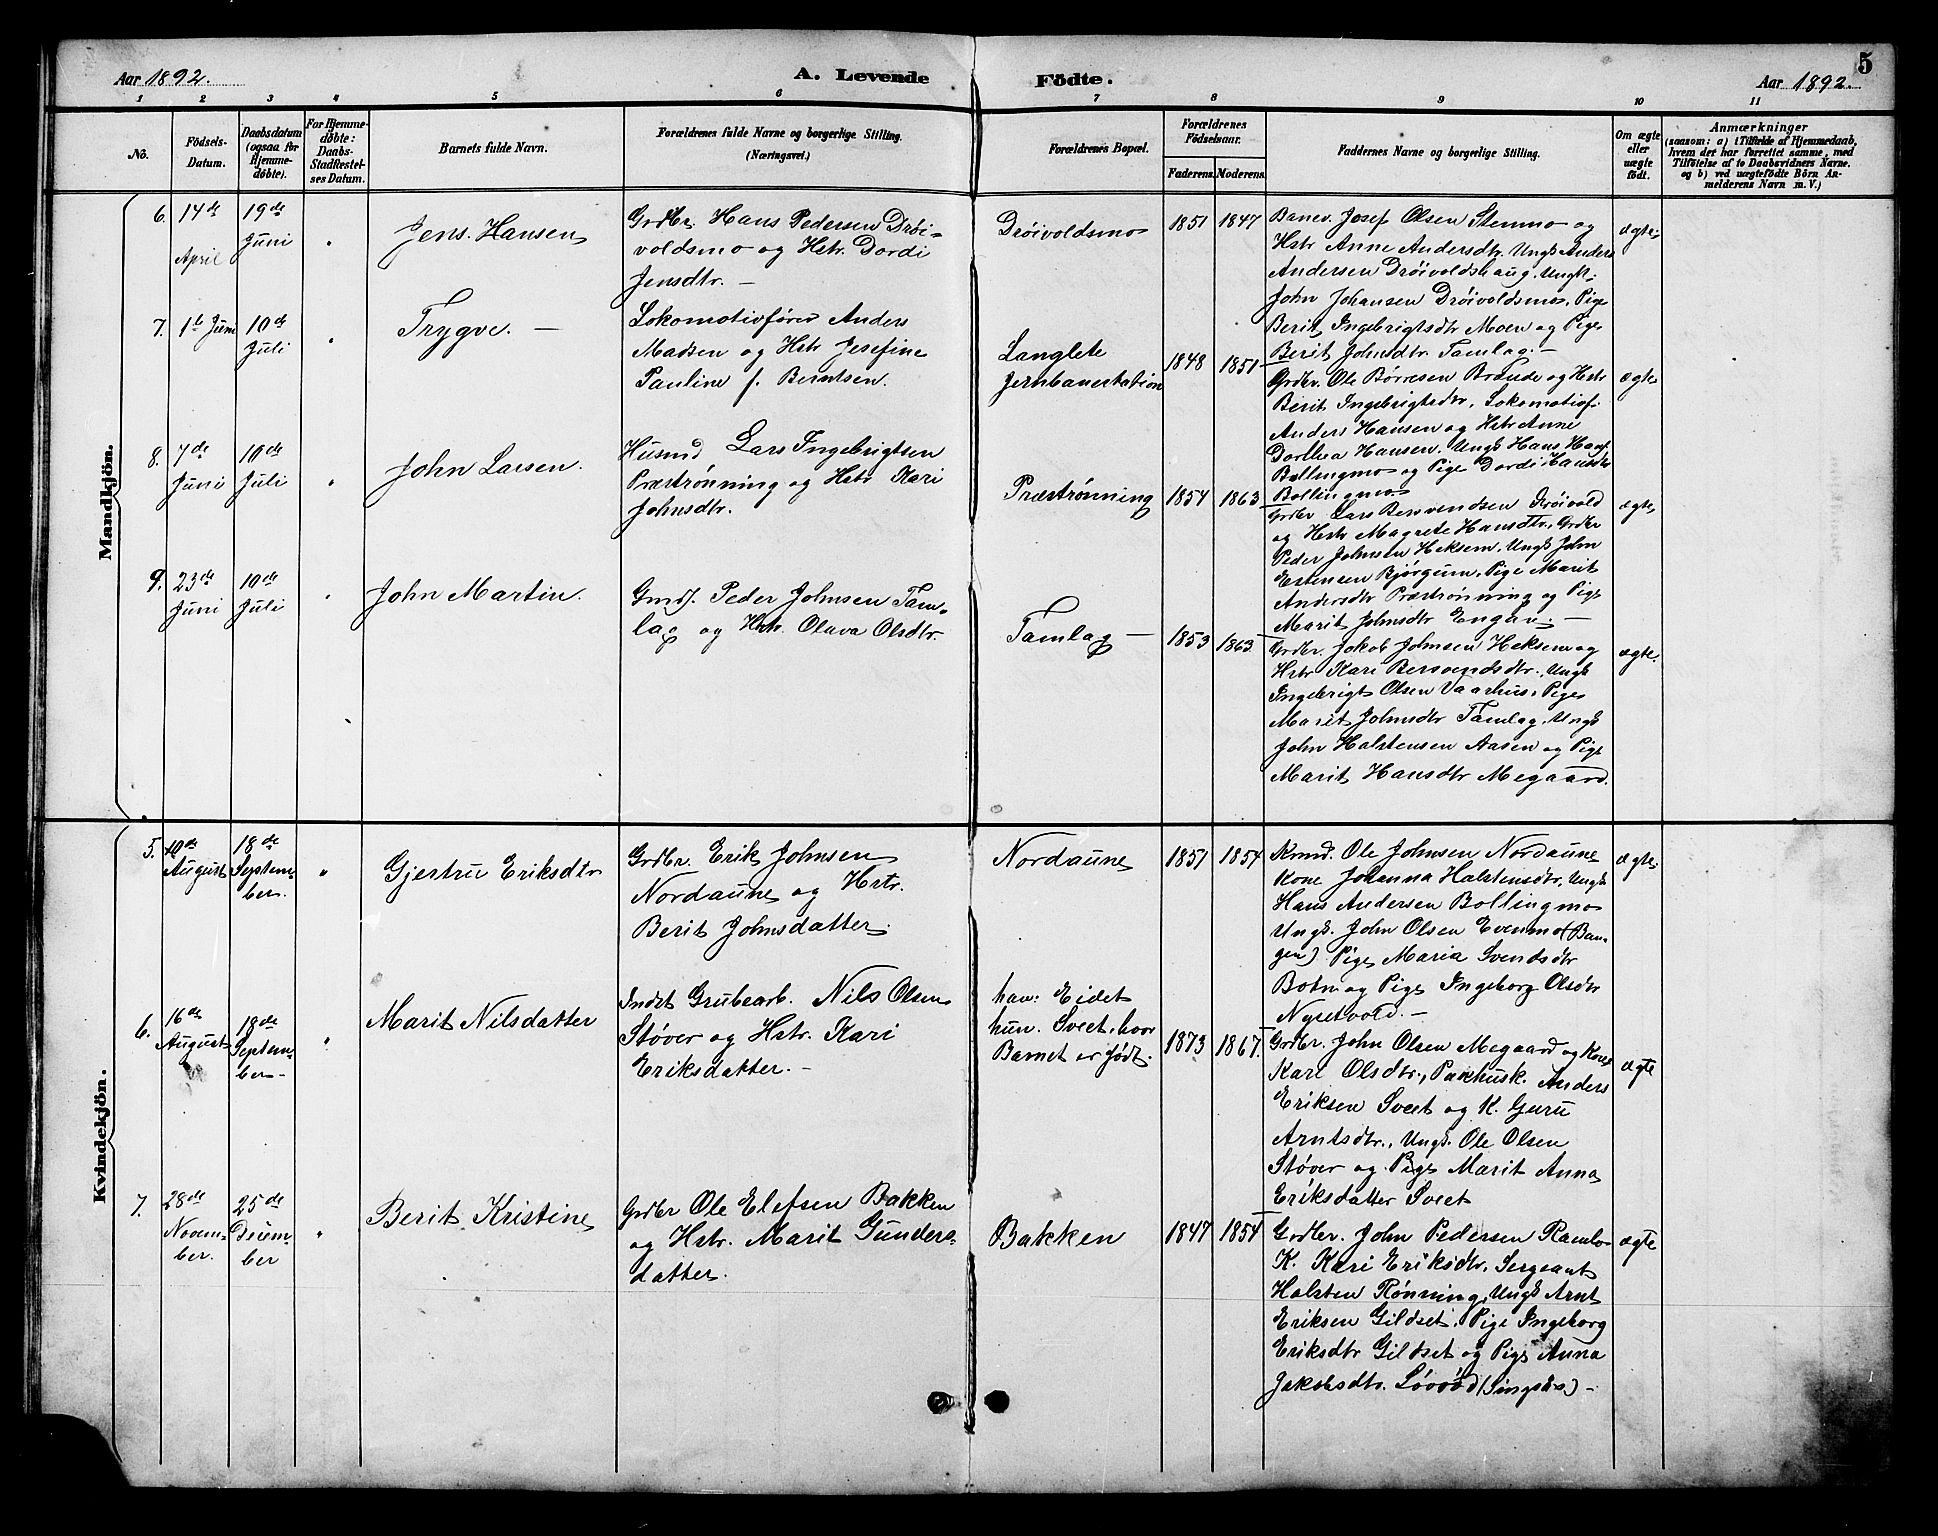 Aar 1892.
A. Levende Födte.
Aar 1892.
5
1 2 3 4 5 6 7 8 9 10 11
No.
Födsels-
Datum.
Daabsdatum
(ogsaa for
Hjemme-
døbte).
For Hjemme-
døbte:
Daabs-
Stadfæstel-
ses Datum.
Barnets fulde Navn.
Forældrenes fulde Navne og borgerlige Stilling.
(Næringsvei.)
Forældrenes Bopæl.
Forældrenes
Fødselsaar.
Faderens. Moderens.
Faddernes Navne og borgerlige Stilling.
Om ægte
eller
uægte
födt.
Anmærkninger
(saasom: a) i Tilfælde af Hjemmedaab,
hvem det har forrettet samme, med
Tilføielse af to Daabsvidners Navne.
og b) ved uægtefödte Börn An-
melderens Navn m. V.)
Mandkjön.
6.
14de
April
19de
Juni
"
Jens Hansen
Grdbr. Hans Pedersen Drøi-
voldsmo og Hstr. Dordi
Jensdtr. —
Drøivoldsmo
1851 1847
Banev. Josef Olsen Stenmo og
Hstr Anne Andersdtr. Ungk Anders
Andersen Drøivoldshaug, Ungk.
John Johansen Drøivoldsmo, Pige
Berit Ingebrigtsdtr Moen og Pige
Berit Johnsdtr. Tamlag. —
ægte
7.
1ste Juni
10de
Juli
"
Trygve. —
Lokomotivfører Anders
Madsen og Hstr Josefine
Pauline f. Berntsen.
Langlete
Jernbanestation
1848 1851
Grdbr. Ole Børresen Brænde og Hstr
Berit Ingebrigtsdtr, Lokomotivf.
Anders Hansen og Hstr Anne
Dorthea Hansen. Ungk Hans Hans.
Bollingmo og Pige Dordi Hansdtr
Bollingmo
ægte
8.
7de
Juni
10de
Juli
"
John Larsen.
Husmd Lars Ingebrigtsen
Præstrønning og Hstr Kari
Johnsdtr.
Præstrønning
1854 1863
Grdbr Lars Bersvendsen Drøivold
og Hstr Magrete Hansdtr, Grdbr
Peder Johnsen Heksem, Ungk John
Estensen Bjørgum, Pige Marit
Andersdtr Præstrønning og Pige
Marit Johnsdtr Engan. —
ægte
9.
23de
Juni
10de
Juli
"
John Martin.
Gmd. Peder Johnsen Tam-
lag og Hstr. Olava Olsdtr.
Tamlag —
1853 1863
Grdbr. Jakob Johnsen Heksem og
Hstr Kari Bersvendsdtr. Ungk
Ingebrigt Olsen Vaarhus, Pige
Marit Johnsdtr Tamlag. Ungk
John Halstensen Aasen og Pige
Marit Hansdtr Megaard.
ægte.
Kvindekjön.
5.
10de
August
18de
Septem
ber.
"
Gjertru Eriksdtr
Grdbr. Erik Johnsen
Nordaune og Hstr.
Berit Johnsdatter.
Nordaune
1851 1854
Kmd. Ole Johnsen Nordaune
Kone Johanna Halstensdtr, Ungk
Hans Andersen Bollingmo
Ungk. John Olsen Evenmo (Ban-
gen) Pige Maria Svendsdtr
Botn og Pige Ingeborg Olsdtr
Nysetvold. —
ægte
6.
16de
August
18de
Septem-
ber —
"
Marit Nilsdatter
Indst Grubearb. Nils Olsen
Støver og Hstr. Kari
Eriksdatter. —
han: Eidet
hun. Sveet, hvor
Barnet er født.
1873 1867.
Grdbr. John Olsen Megaard og Kone
Kari Olsdtr., Pakhusk. Anders
Eriksen Sveet og K. Guru
Arntsdtr., Ungk. Ole Olsen
Støver og Pige Marit Anna
Eriksdatter Sveet
ægte
7.
28de
Novem-
ber.
25de
Decem-
ber
"
Berit Kristine
Grdbr Ole Elefsen Bakken
og Hstr. Marit Gunders-
datter.
Bakken
1847 1854
Grdbr. John Pedersen Ramlo
K. Kari Eriksdtr, Sergeant
Halsten Rønning, Ungk Arnt
Eriksen Gildset, Pige Ingeborg
Eriksdtr Gildset og Pige Anna
Jakobsdtr. Løvød (Singsås) —
ægte